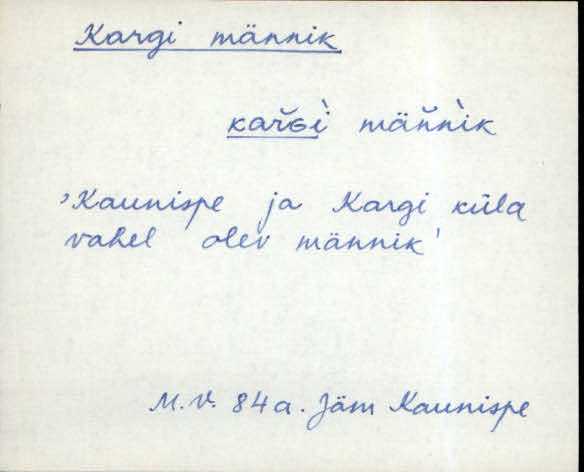 Kargi männik
kar̆Gì männ̆ìk
'Kaunispe ja Kargi küla
vahel olev männik'
M.V. 84a. Jäm Kaunispe